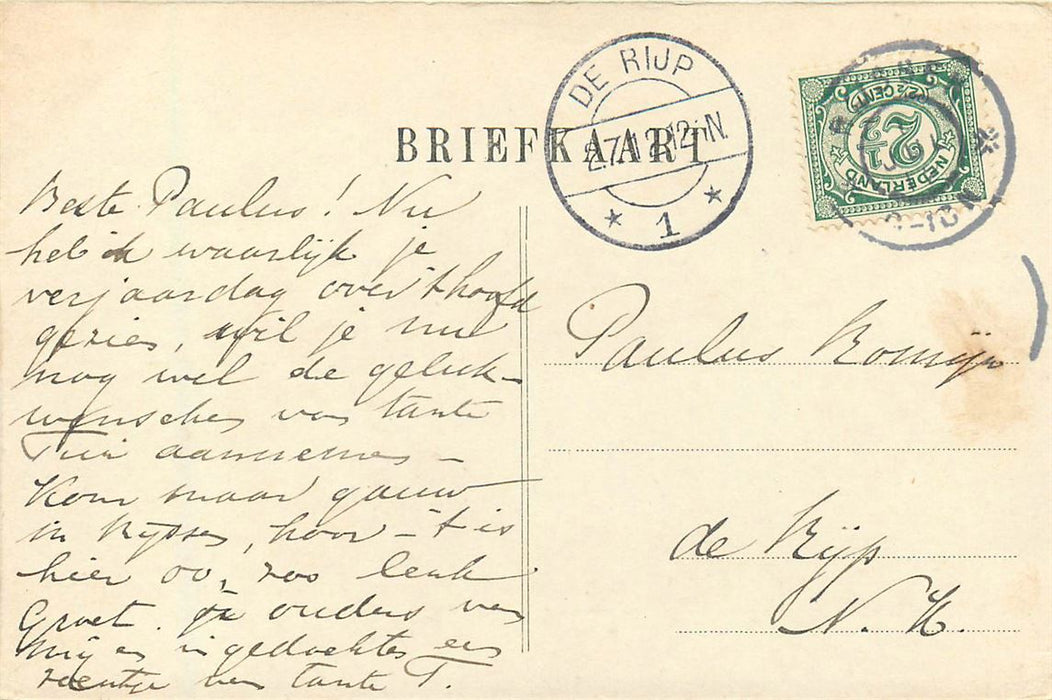 BRIEFKAART
DE RIJP
2.7.12 12-1N.
1
2½ CENT
2½
NEDERLAND
Beste Paulus! Nu
heb ik waarlijk je
verjaardag over 't hoofd
gezien, wil je nu
nog wel de geluk-
wenschen van tante
Tien aannemen –
Kom maar gauw
in Rijssen, hoor – 't is
hier oo, zoo leuk
Groet je ouders van
mij en in gedachten een
zoentje van tante T.
Paulus Romijn
de Rijp
N. H.